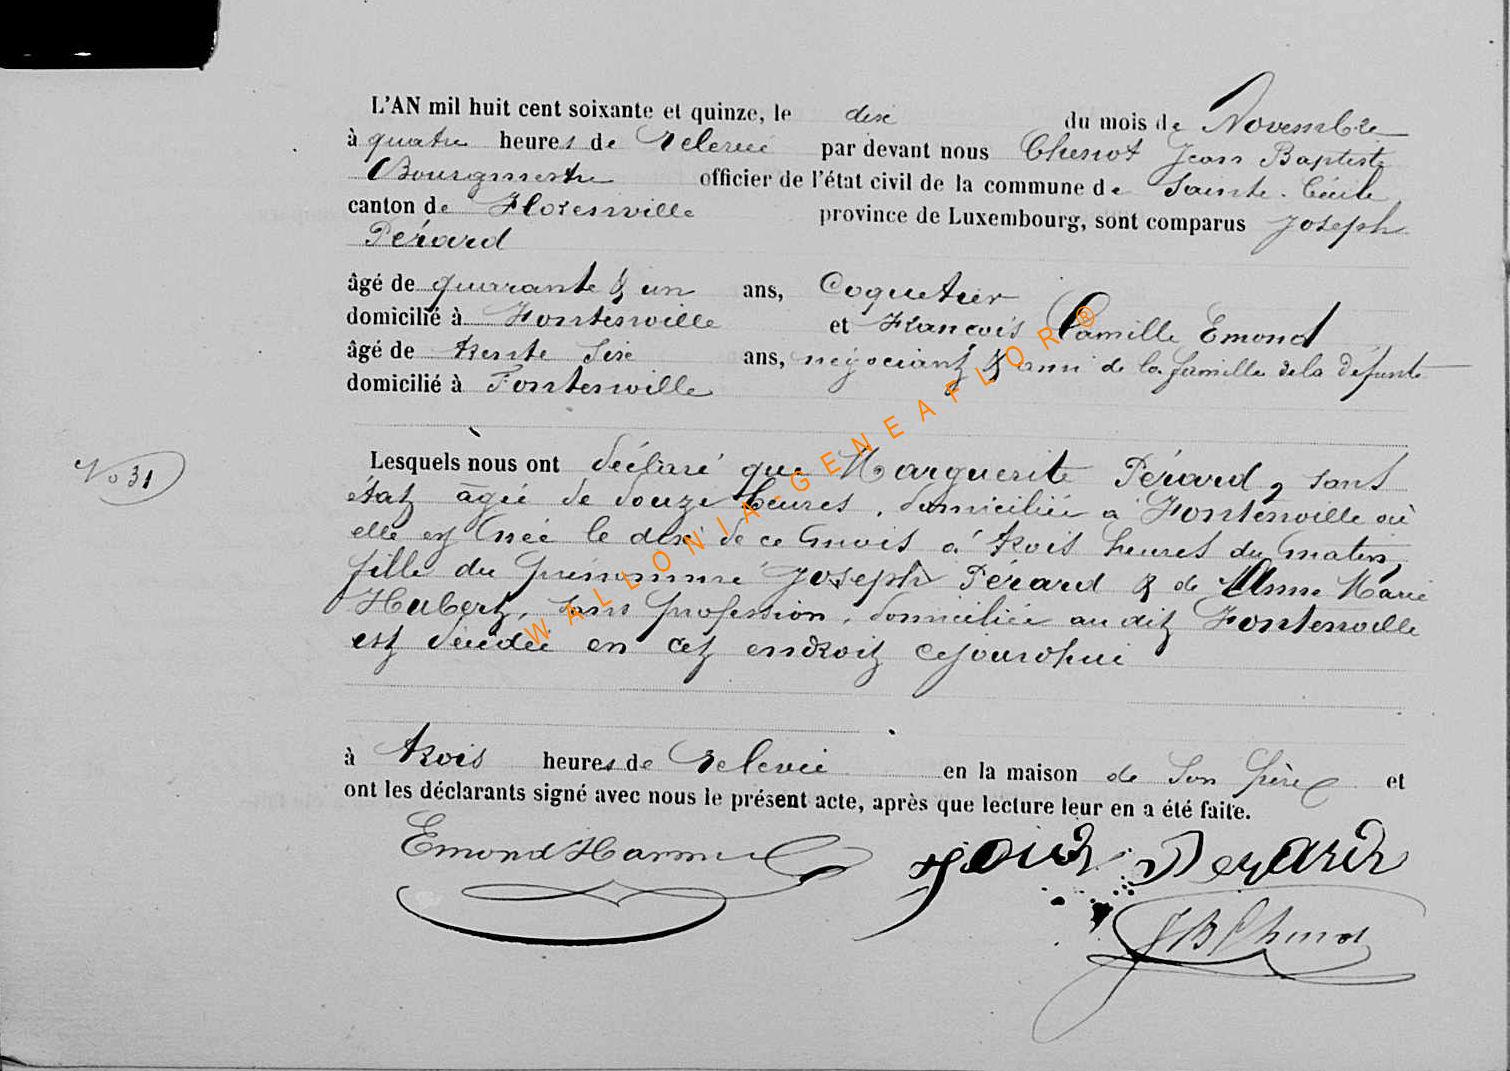 L'AN mil huit cent soixante et quinze, le dix du mois de Novembre
à quatre heures de relevée par devant nous Chenot Jean Baptiste
Bourgmestre officier de l'état civil de la commune de Sainte-Cécile
canton de Florenville province de Luxembourg, sont comparus Joseph
Pérard
âgé de quarante & un ans, Coquetier
domicilié à Fontenoille et François Camille Emond
âgé de trente six ans, négociant & ami de la famille de la défunte
domicilié à Fontenoille
No 31
Lesquels nous ont déclaré que Marguerite Pérard, sans
état âgée de douze heures, domiciliée à Fontenoille où
elle est née le dix de ce mois à trois heures du matin,
fille du prénommé Joseph Pérard & de Anne Marie
Hubert, sans profession, domiciliée au dit Fontenoille
est décédée en cet endroit cejourd'hui
à trois heures de relevée en la maison de son père et
ont les déclarants signé avec nous le présent acte, après que lecture leur en a été faite.
Emond
JBChenot
WALLONIA-GENEAFLOR®